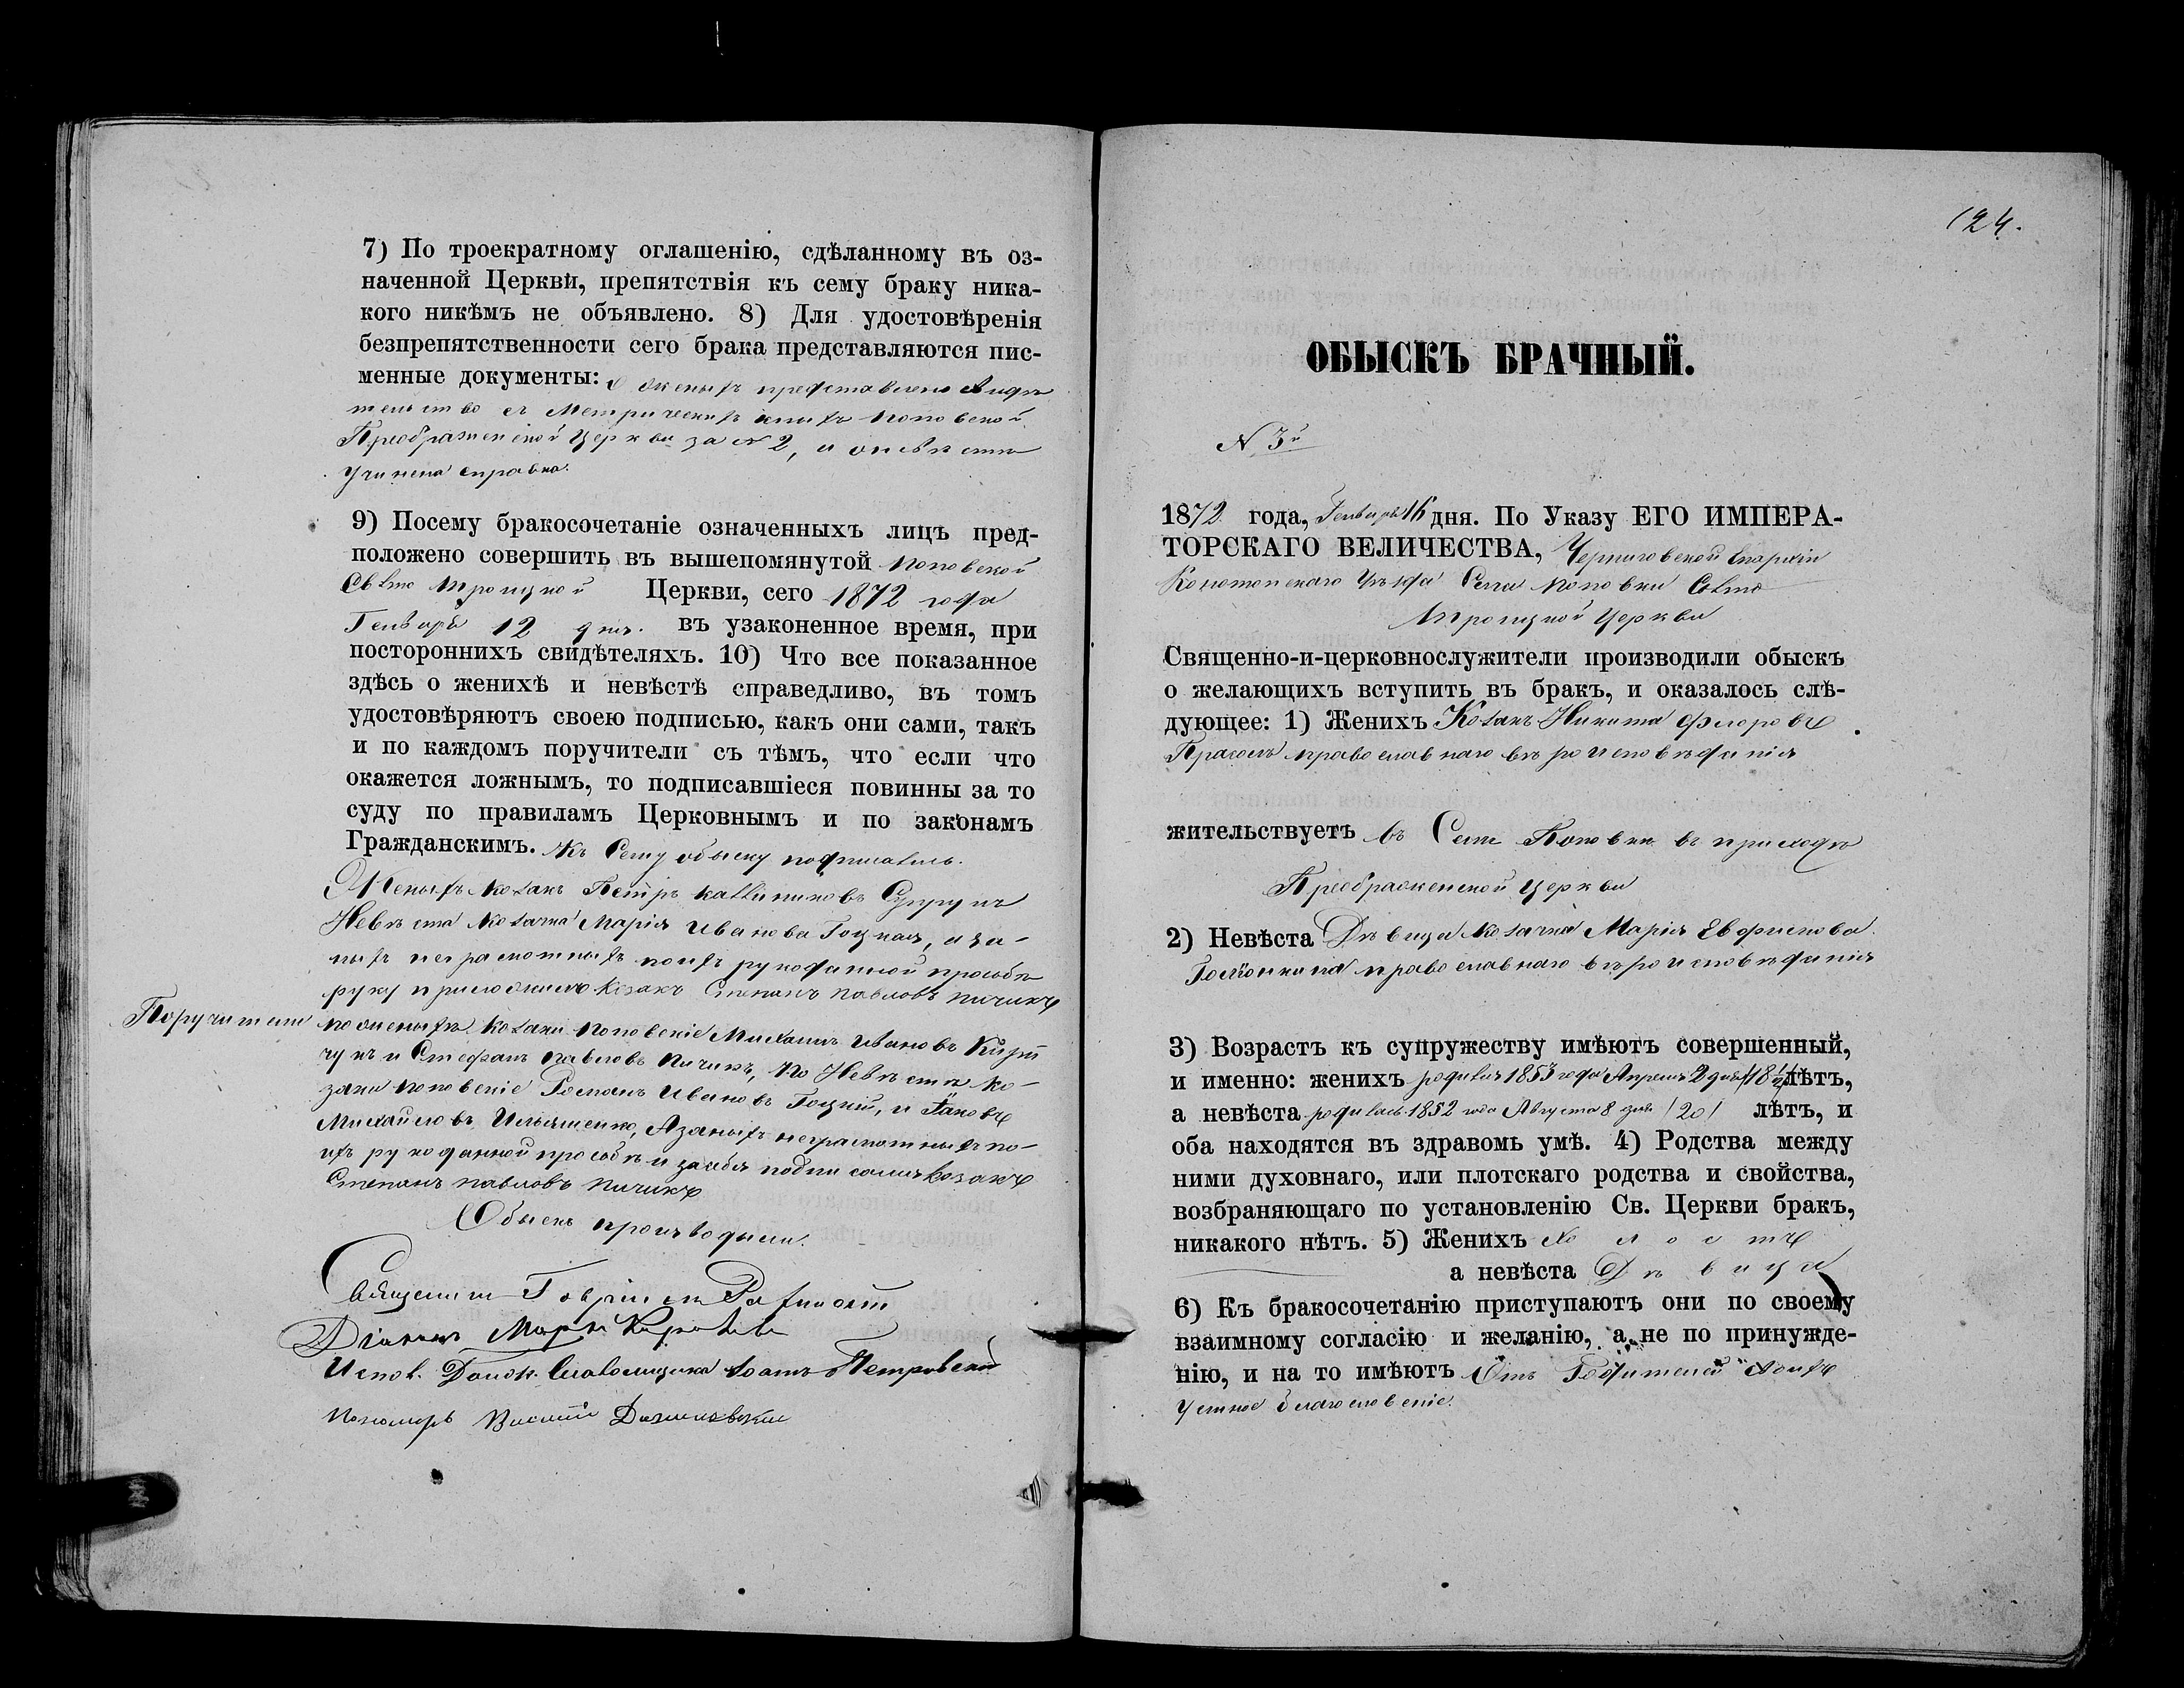 7) По троекратному оглашенію, сдѣланному въ оз-
наченной Церкви, препятствія къ сему браку ника-
кого никѣмъ не объявлено. 8) Для удостовѣренія
безпрепятственности сего брака представляются пис-
менные документы: о женихѣ представлено Свидѣ
тельство съ Метрическихъ книгъ Поповской
Преображенской Церкви за № 2, и о невѣстѣ
учинена справка.
9) Посему бракосочетаніе означенныхъ лицъ пред-
положено совершить въ вышепомянутой Поповской
Свято Троицкой Церкви, сего 1872 года
Генваря 12 дня. въ узаконенное время, при
постороннихъ свидѣтеляхъ. 10) Что все показанное
здѣсь о женихѣ и невѣстѣ справедливо, въ томъ
удостовѣряютъ своею подписью, какъ они сами, такъ
и по каждомъ поручители съ тѣмъ, что если что
окажется ложнымъ, то подписавшіеся повинны за то
суду по правиламъ Церковнымъ и по законамъ
Гражданскимъ. Къ Сему обыску подписались.
Женихъ Козакъ Петръ Каллиниковъ Супрунъ
Невѣста Козачка Марія Иванова Гоцкая, а за-
нихъ неграмотныхъ по ихъ рукоданной прозьбѣ
руку приложилъ Козакъ Степанъ Павловъ Пичикъ
Поручители по женихѣ Козаки Поповскіе Михаилъ Ивановъ
и Стефанъ Павловъ Пичикъ, По Невѣстѣ Ко-
заки Поповскіе Романъ Ивановъ Гоцкій, и Яковъ
Михайловъ Ильяшенко, А за нихъ неграмотныхъ по-
ихъ рукоданной прозьбѣ и за себя подписался Козакъ
Степанъ Павловъ Пичикъ
Обыскъ производили.
Священник
Діаконъ Маркъ
Испов. Должн. Псаломщика Іоаннъ Петровскій
Пономарь Василій
124.
ОБЫСКЪ БРАЧНЫЙ.
N 3й
1872 года, Генваря 16 дня. По Указу ЕГО ИМПЕРА-
ТОРСКАГО ВЕЛИЧЕСТВА, Черниговской Епархіи
Конотопскаго Уѣзда Села Поповки Свято
Троицкой Церкви
Священно-и-церковнослужители производили обыскъ
о желающихъ вступить въ бракъ, и оказалось слѣ-
дующее: 1) Женихъ Козакъ Никита Флоровъ
Прасолъ православнаго вѣроисповѣданія
жительствуетъ въ Селѣ Поповкѣ въ приходѣ
Преображенской Церкви
2) Невѣста Дѣвица Козачка Марія
православнаго вѣроисповѣданія
3) Возрастъ къ супружеству имѣютъ совершенный,
и именно: женихъ родился 1853 года Апреля 2 дня /18½/ лѣтъ,
а невѣста родилась 1852 года Августа 8 дня /20/ лѣтъ, и
оба находятся въ здравомь умѣ. 4) Родства между
ними духовнаго, или плотскаго родства и свойства,
возбраняющаго по установленію Св. Церкви бракъ,
никакого нѣтъ. 5) Женихъ Холостъ
а невѣста Дѣвица
6) Къ бракосочетанію приступаютъ они по своему
взаимному согласію и желанію, а не по принужде-
нію, и на то имѣютъ Отъ Родителей своихъ
устное благословеніе.